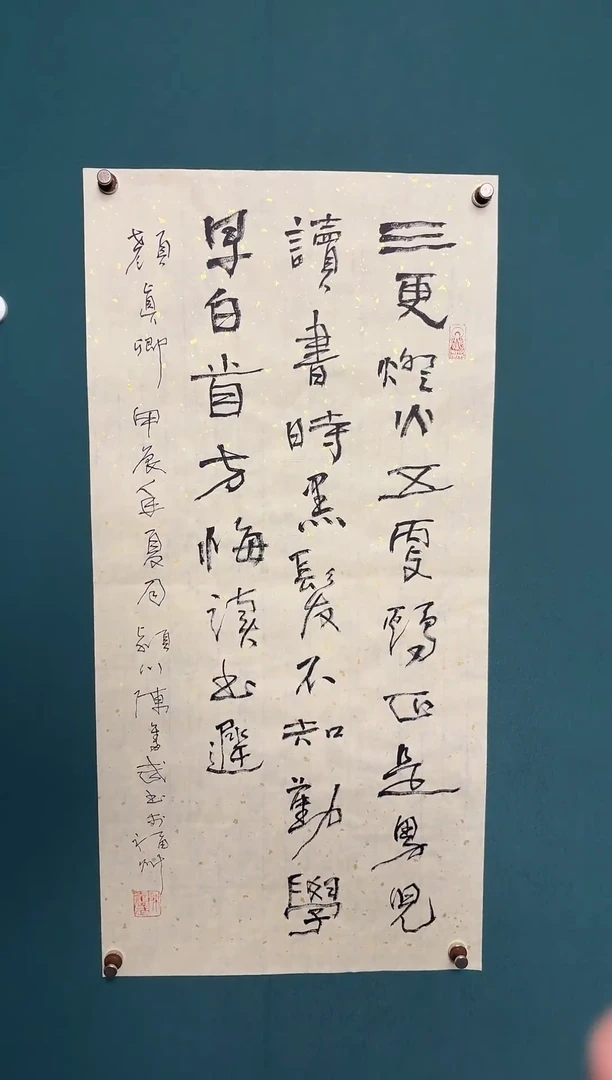 三更燈火五更鷄正是男兒
讀書時黑髮不知勤學
早白首方悔讀书遲
顏真卿 甲辰年夏月 潁川陳武书於福州